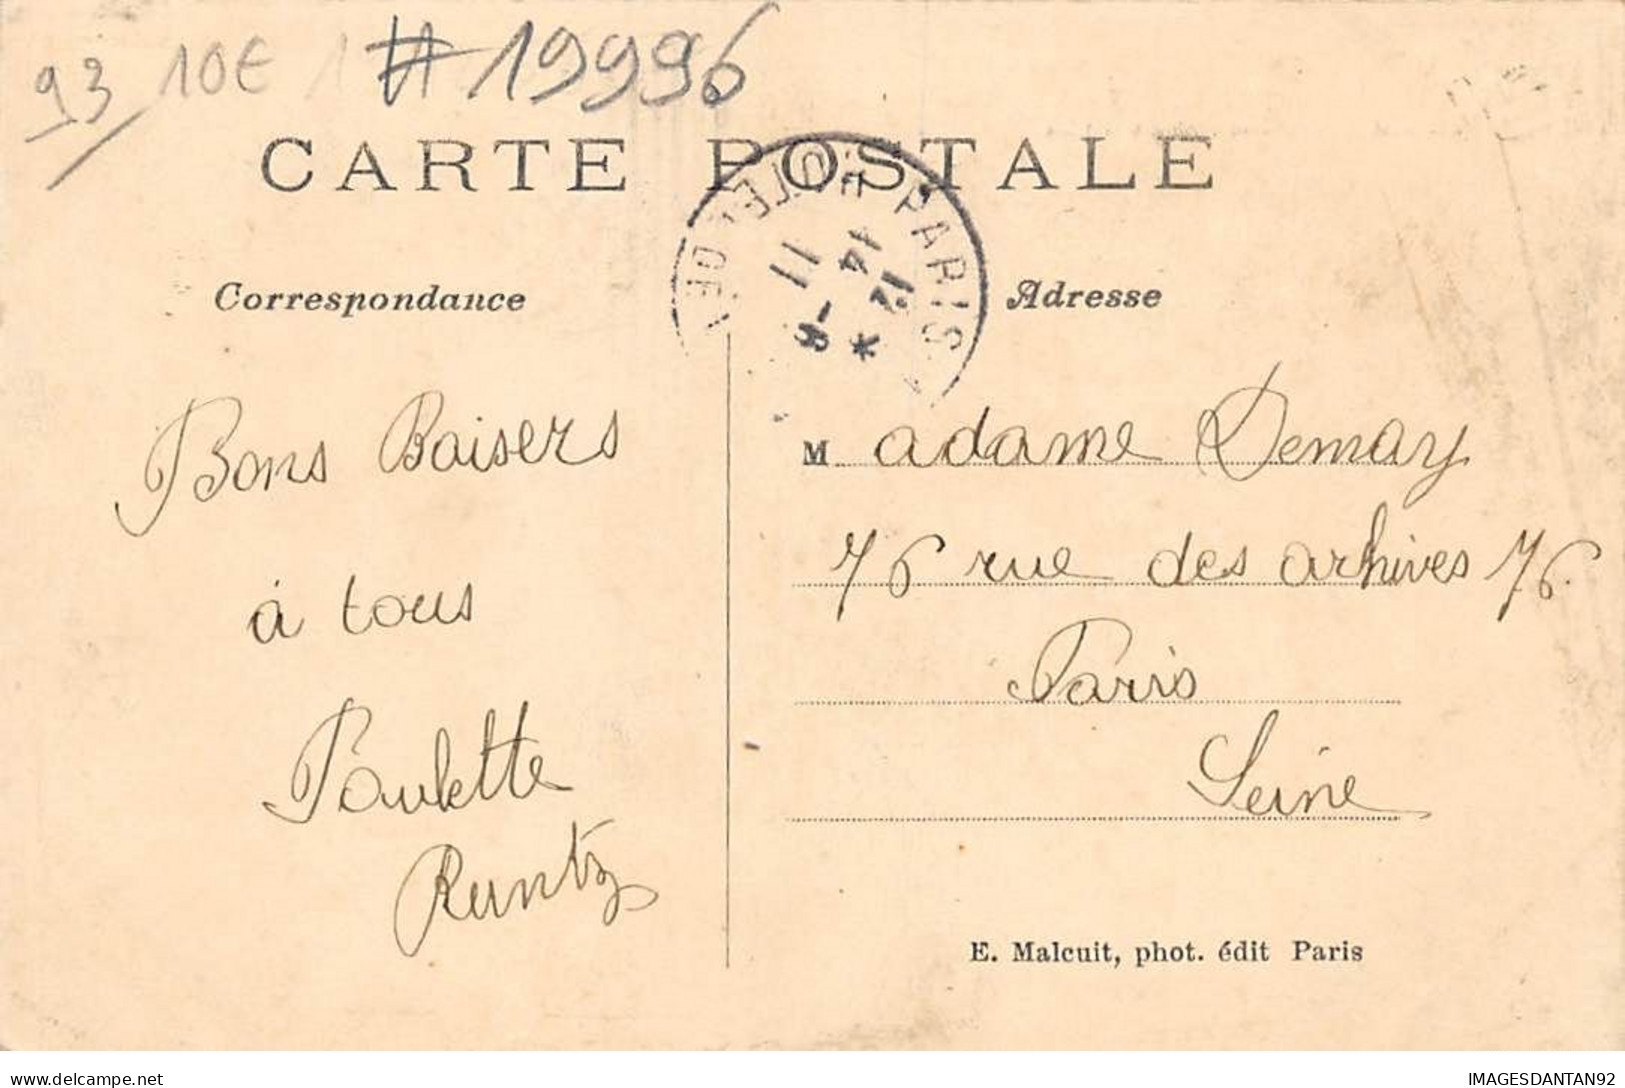 93 10€ # 19996
CARTE POSTALE
PARIS
HOTEL DE
12 *
14 -6
11
Correspondance
Adresse
Bons Baisers
à tous
Paulette
Runtz
M adame Demay
76 rue des arhives 76
Paris
Seine
E. Malcuit, phot. édit Paris
delcampe.net
IMAGESDANTAN92